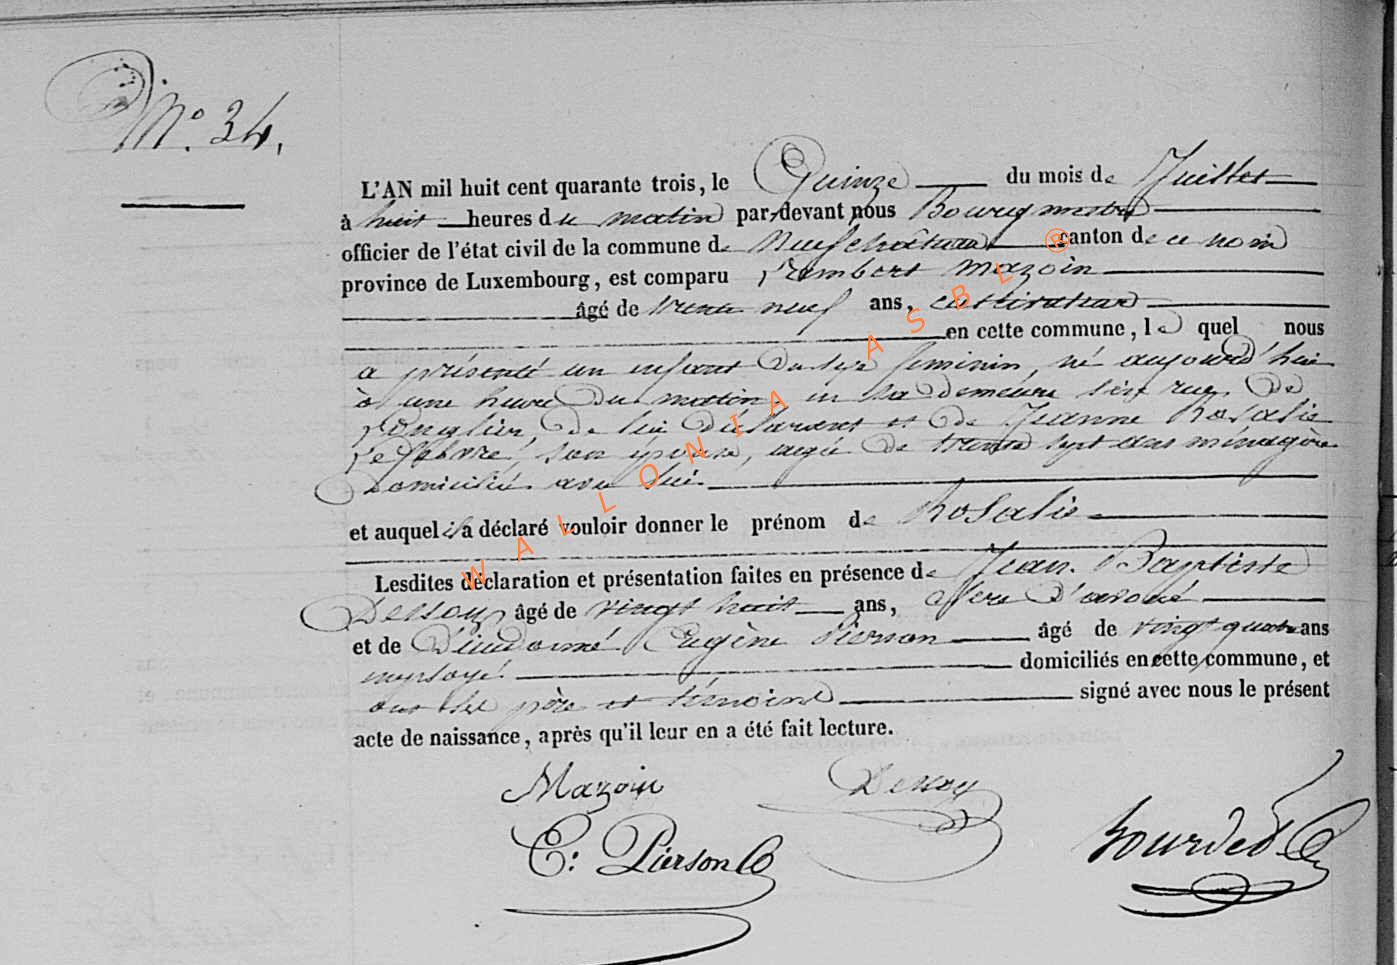 N.º 34,
L'AN mil huit cent quarante trois, le Quinze du mois de Juillet
à huit heures du matin par-devant nous Bourgmestre
officier de l'état civil de la commune de Neufchateau canton de ce nom
province de Luxembourg, est comparu Lambert Mazoin
âgé de trente neuf ans, cultivateur
en cette commune, le quel nous
a présenté un enfant du sexe feminin, né aujourd'hui
à une heure du matin, en sa demeure sise rue De
Longlier, de lui déclarant et de Jeanne Rosalie
Lefebvre, son épouse, agée de trente sept ans ménagère
Domiciliée avec lui.
et auquel il a déclaré vouloir donner le prénom de Rosalie
Lesdites déclaration et présentation faites en présence de Jean-Baptiste
Dessoy âgé de vingt huit ans, Clerc d'avoué
et de Dieudonné Eugène Pierson âgé de vingt quatre ans
employé domiciliés en cette commune, et
ont les père et témoins signé avec nous le présent
acte de naissance, après qu'il leur en a été fait lecture.
Mazoin Dessoy
E: Pierson
WALLONIA ASBL ®